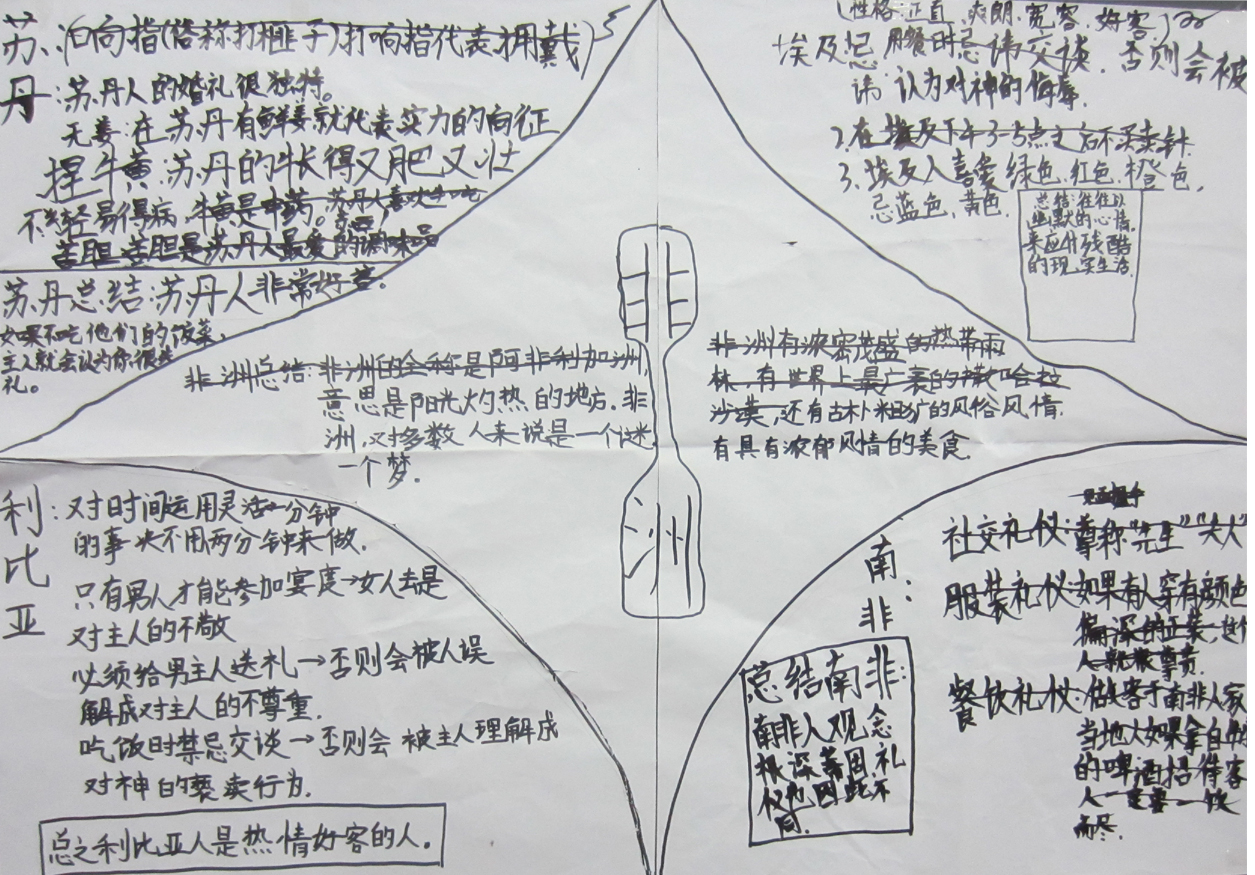 苏丹:
向指(俗称打榧子)打响指代表拥戴
苏丹人的婚礼很独特。
无姜:在苏丹有鲜姜就代表实力的向征
捏牛黄:苏丹的牛长得又肥又壮
不会轻易得病,牛黄是中药。苏丹人喜欢生吃
苦胆,苦胆是苏丹人最爱的调味品
苏丹总结:苏丹人非常好客。
如果不吃他们的饭菜,
主人就会认为你很失
礼。
(性格:正直、爽朗、宽容、好客)
埃及忌 用餐时忌讳交谈,否则会被
讳:认为对神的侮辱。
2.在埃及下午3-5点之后不买卖针
3.埃及人喜爱绿色、红色、橙色,
忌蓝色、黄色.
总结:往往以
幽默的心情
来应付残酷
的现实生活
非洲总结:非洲的全称是阿非利加洲,
意思是阳光灼热的地方.非
洲,对多数人来说是一个迷
一个梦.
非洲有浓密茂盛的热带雨
林,有世界上最广袤的撒哈拉
沙漠,还有古朴粗犷的风俗风情.
有具有浓郁风情的美食.
利比亚
:对时间运用灵活一分钟
的事决不用两分钟来做.
只有男人才能参加宴度→女人去是
对主人的不敬
必须给男主人送礼→否则会被人误
解成对主人的不尊重.
吃饭时禁忌交谈→否则会被主人理解成
对神的亵卖行为.
总之利比亚人是热情好客的人。
南非:
见面握手
社交礼仪:尊称“先生”“夫人”
服装礼仪:如果有人穿有颜色
偏深的正装,这
人就很尊贵.
餐饮礼仪:做客于南非人家
当地人如果拿自
的啤酒招待客
人一定要一饮
而尽.
总结南非:
南非人观念
根深蒂固,礼
仪也因此不
同.